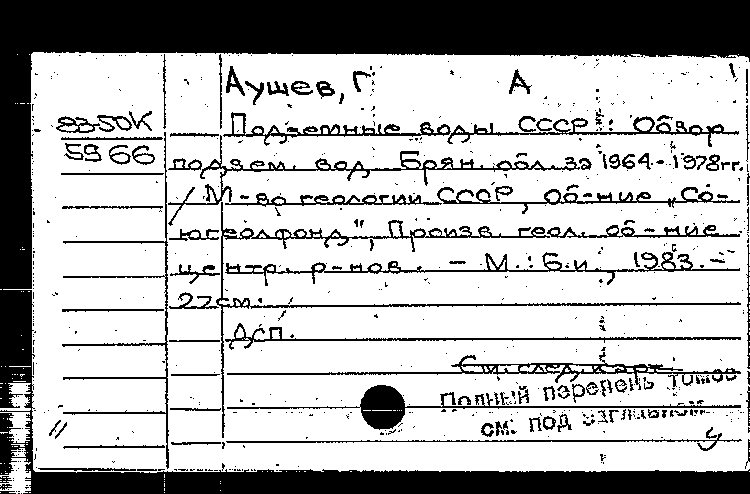 Аушев, Г А
83-50К
Подземные воды СССР : Обзор
5966
подзем. вод Брян. обл. за 1964-1978гг.
/ М-во геологии СССР, Об-ние „Со-
югеолфонд", Произв. геол. об-ние
центр. р-нов. – М. : Б.и., 1983. –
27см.
Дсп.
См. след. карт.
Полный перечень томов
см. под заглавием